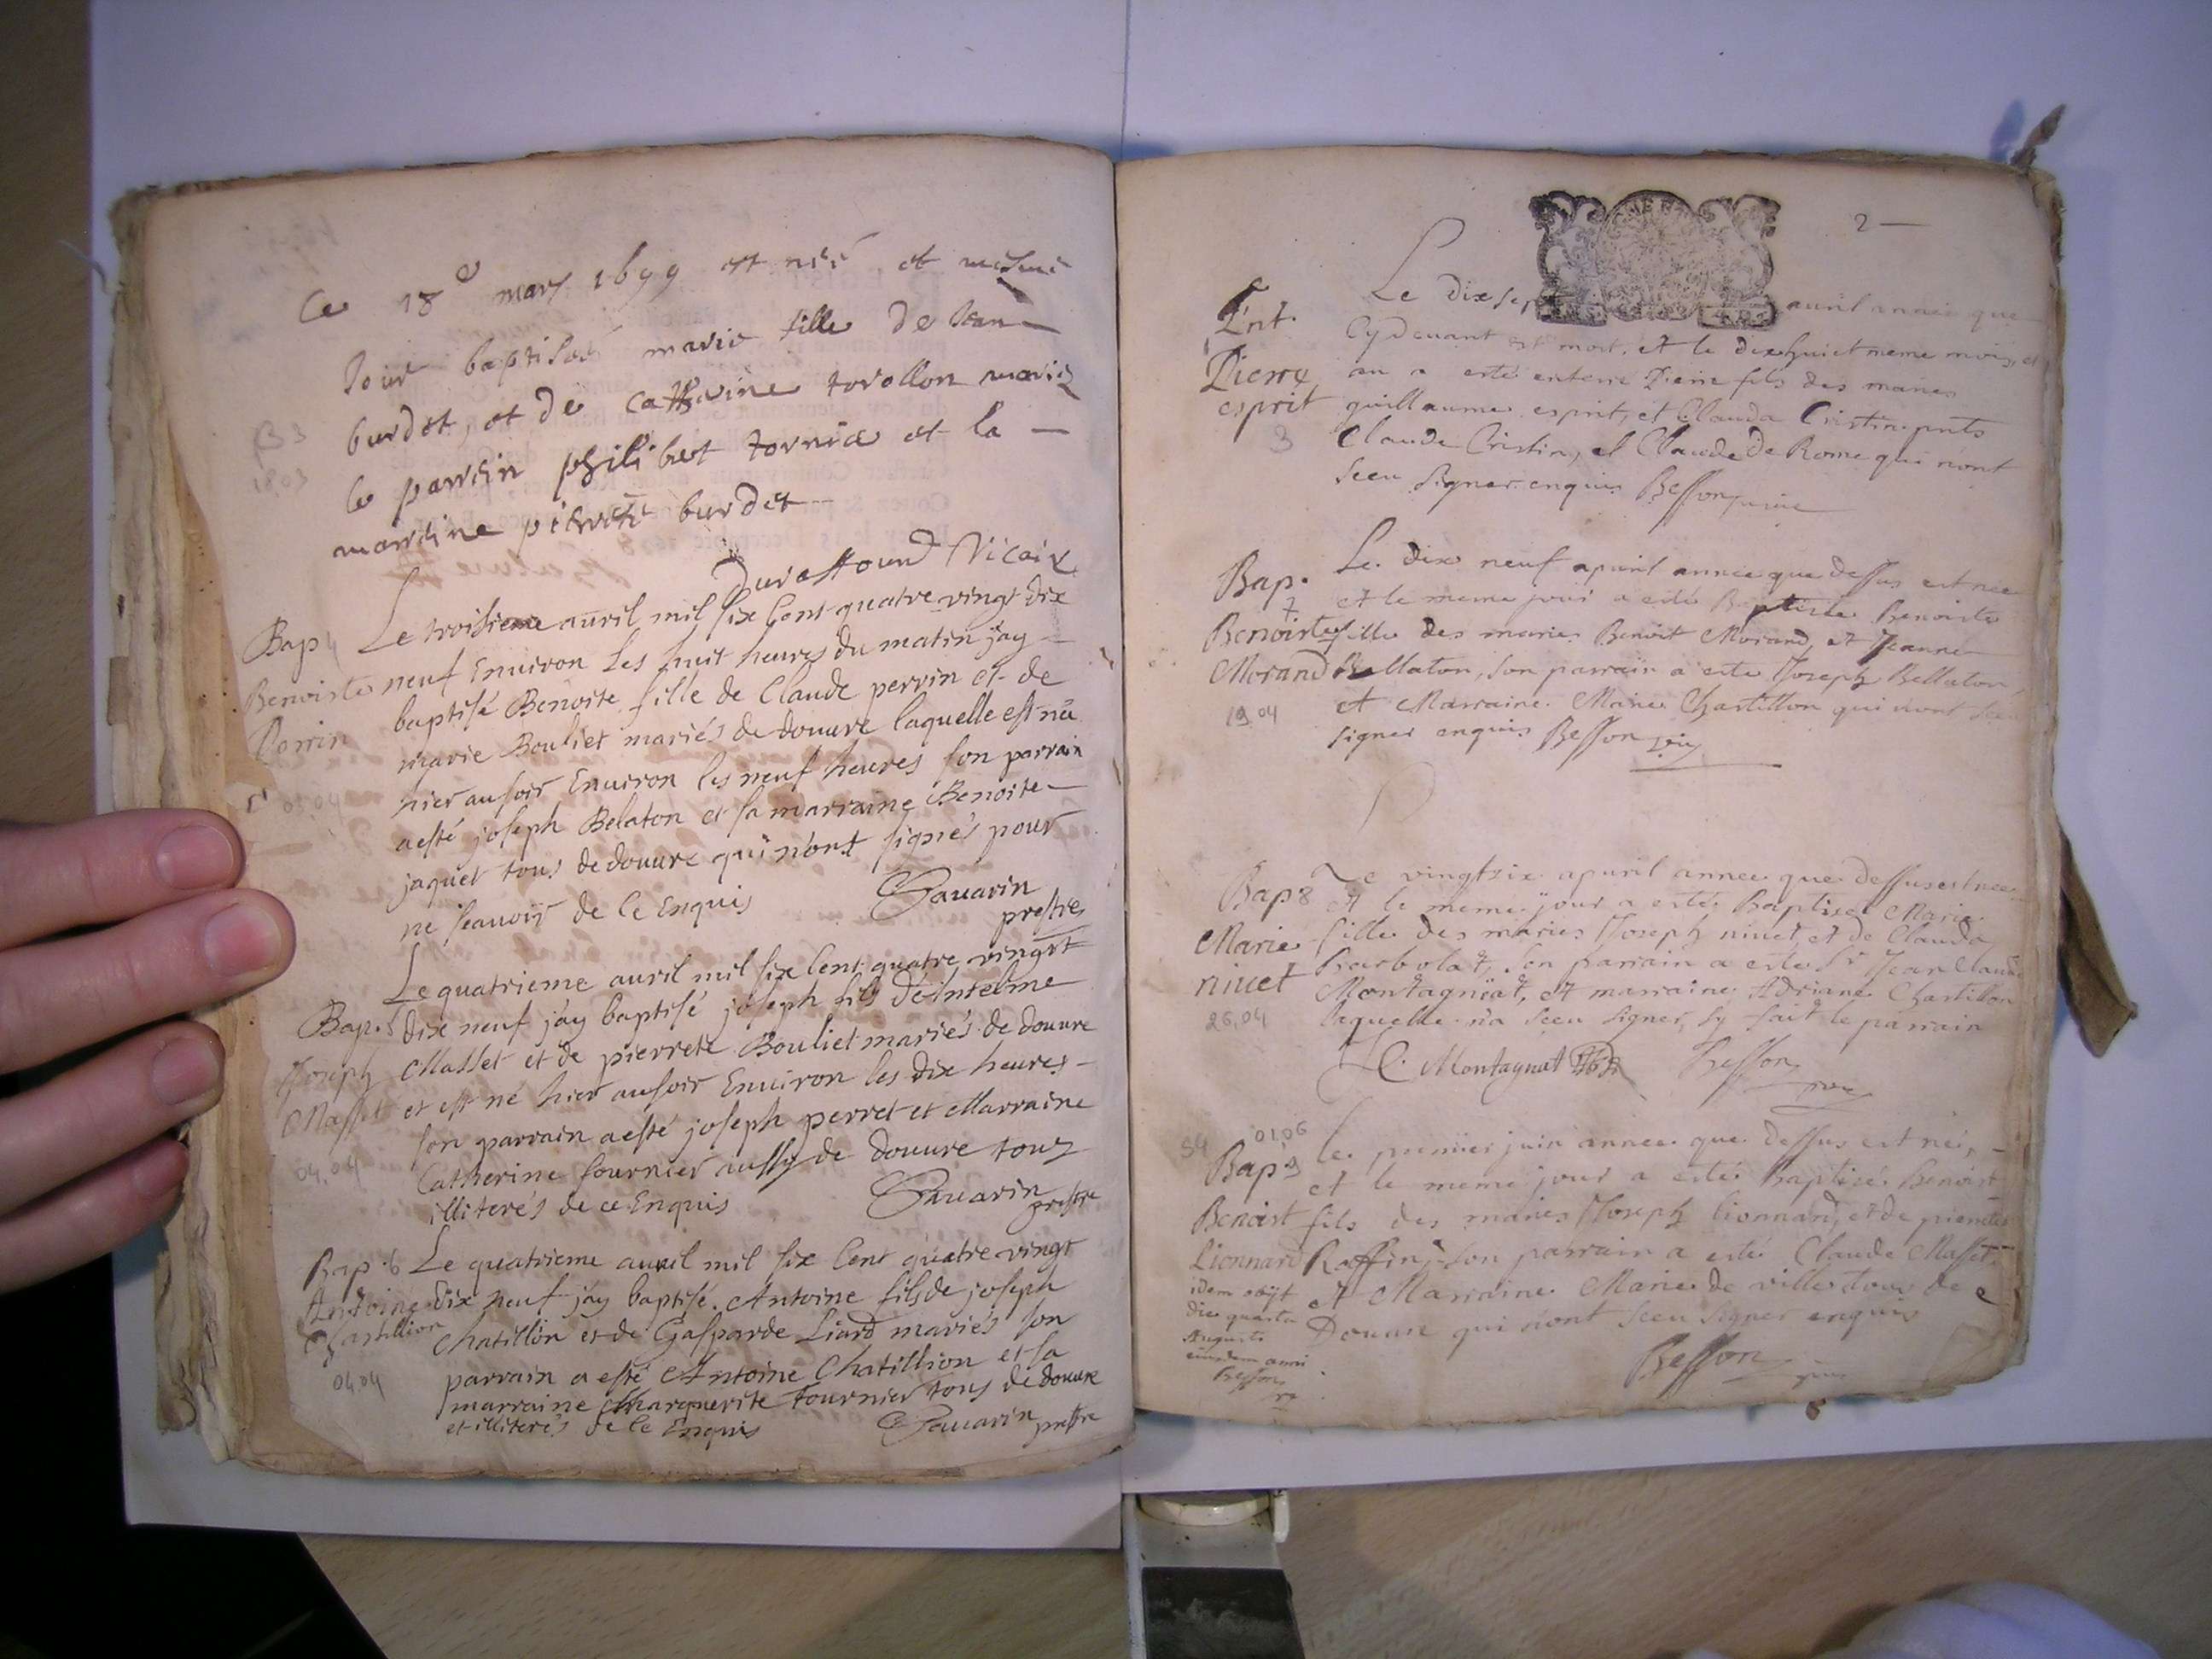 Ce 18e mars 1699 est née et mesme
Jour baptisée marie fille de Jean
burdet, et de Catherine torollon mariez
le parrin philibert tornier et la
marrine pierrette burdet
Vicaire
B3
18,03
Bap 4
Benoiste
Perrin
03.04
Le troisieme auril mil six Cent quatre vingt dix
neuf Enuiron Les huit heures du matin jay
baptisé Benoite fille de Claude perrin et de
marie Bouliet mariés de douure laquelle est née
hier au soir Enuiron les neuf heures son parrain
a esté joseph Belaton et sa marraine Benoite
jaquet tous de douure qui n'ont signés pour
ne scauoir de Ce Enquis Sauarin
prestre
Bap. 5
Joseph
Masset
04.04
Le quatrieme auril mil six Cent quatre vingt
dix neuf j'ay baptisé joseph fils d'Antelme
Masset et de pierrete Bouliet mariés de douure
et est né hier au soir Enuiron les dix heures
son parrain a esté joseph perret et Marraine
Catherine fournier aussy de douure tous
illiterés de ce Enquis Sauarin prestre
Bap. 6
Antoine
Chastillion
04.04
Le quatrieme auril mil six Cent quatre vingt
dix neuf j'ay baptisé Antoine fils de joseph
Chatillon et de Gasparde Liard mariés son
parrain a esté Antoine Chatillion et sa
marraine Marguerite fournier tous de douure
et illiterés de Ce Enquis Sauarin prestre
2
Ent.
Pierre
esprit
3
Le dix sept auril année que
Cy deuant est mort, et le dixhuict meme mois, et
an a esté enterré Pierre fils des mariés
guillaume esprit, et Clauda Cristin pnts
Claude Cristin, et Claude De Rome qui n'ont
sceu signer enquis Besson
Bap.
7
Benoiste
Morand
19.04
Le dix neuf apuril année que dessus est née
et le meme jour a esté Baptisée Benoiste
fille des mariés Benoit Morand, et Jeanne
Bellaton, son parrain a esté Joseph Bellaton,
et Marraine Marie Chastillon qui n'ont sceu
signer enquis Besson
Bap 8
Marie
niuet
26,04
Le vingt six apuril année que dessus est née
et le meme jour a esté Baptisée Marie
fille des mariés Joseph niuet, et de Clauda
barbolat, son parrain a esté Sr Jean Claude
Montagniat, et marraine Adriane Chastillon
laquelle n'a sceu signer, sy fait le parrain
Montagnat Besson
54
01,06
Bap 9
Benoist
Lionnard
idem obijt
die quarta
Augusti
eiusdem anni
Besson
le premier juin année que dessus est né,
et le meme jour a esté Baptisé Benoist
fils des mariés Joseph lionnard, et de pierrette
Raffin, son parrain a esté Claude Masset,
et Marraine Marie de ville tous de
Douure qui n'ont sceu signer enquis
Besson